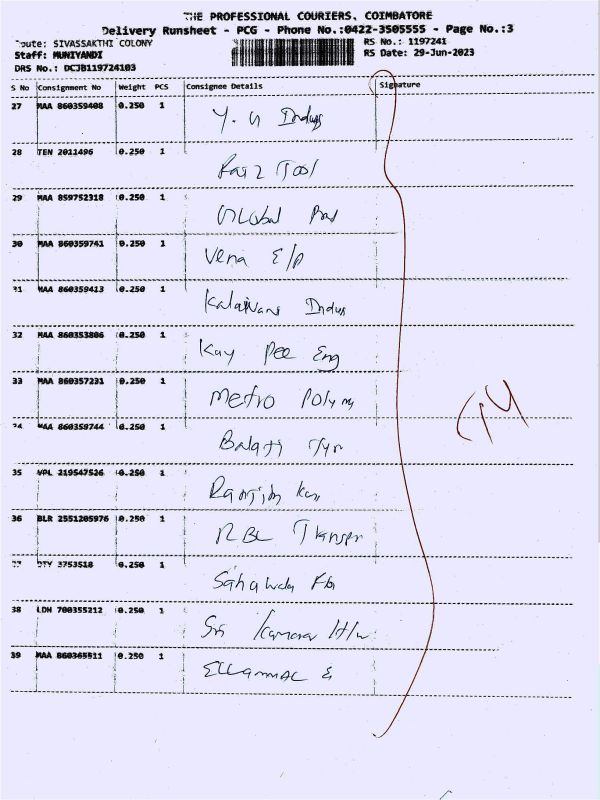 THE PROFESSIONAL COURIERS, COIMBATORE
Delivery Runsheet - PCG - Phone No.:0422-3505555 - Page No.:3
Route: SIVASSAKTHI COLONY
RS No.: 1197241
Staff: MUNIYANDI
RS Date: 29-Jun-2023
DRS No.: DCJB119724103
S No Consignment No Weight PCS Consignee Details Signature
27 MAA 860359408 0.250 1
28 TEN 2011496 0.250 1 Tool
29 MAA 859752318 0.250 1 Global
30 MAA 860359741 0.250 1 Vena E/p
31 MAA 860359413 0.250 1 Indus
32 MAA 860353806 0.250 1 Kay Pee Eng
33 MAA 860357231 0.250 1 Metro Polym
34 MAA 860359744 0.250 1 Balaji
35 VPL 219547526 0.250 1
36 BLR 2551205976 0.250 1
37 3753518 0.250 1
38 LDH 700355212 0.250 1 Sri
39 MAA 860365511 0.250 1